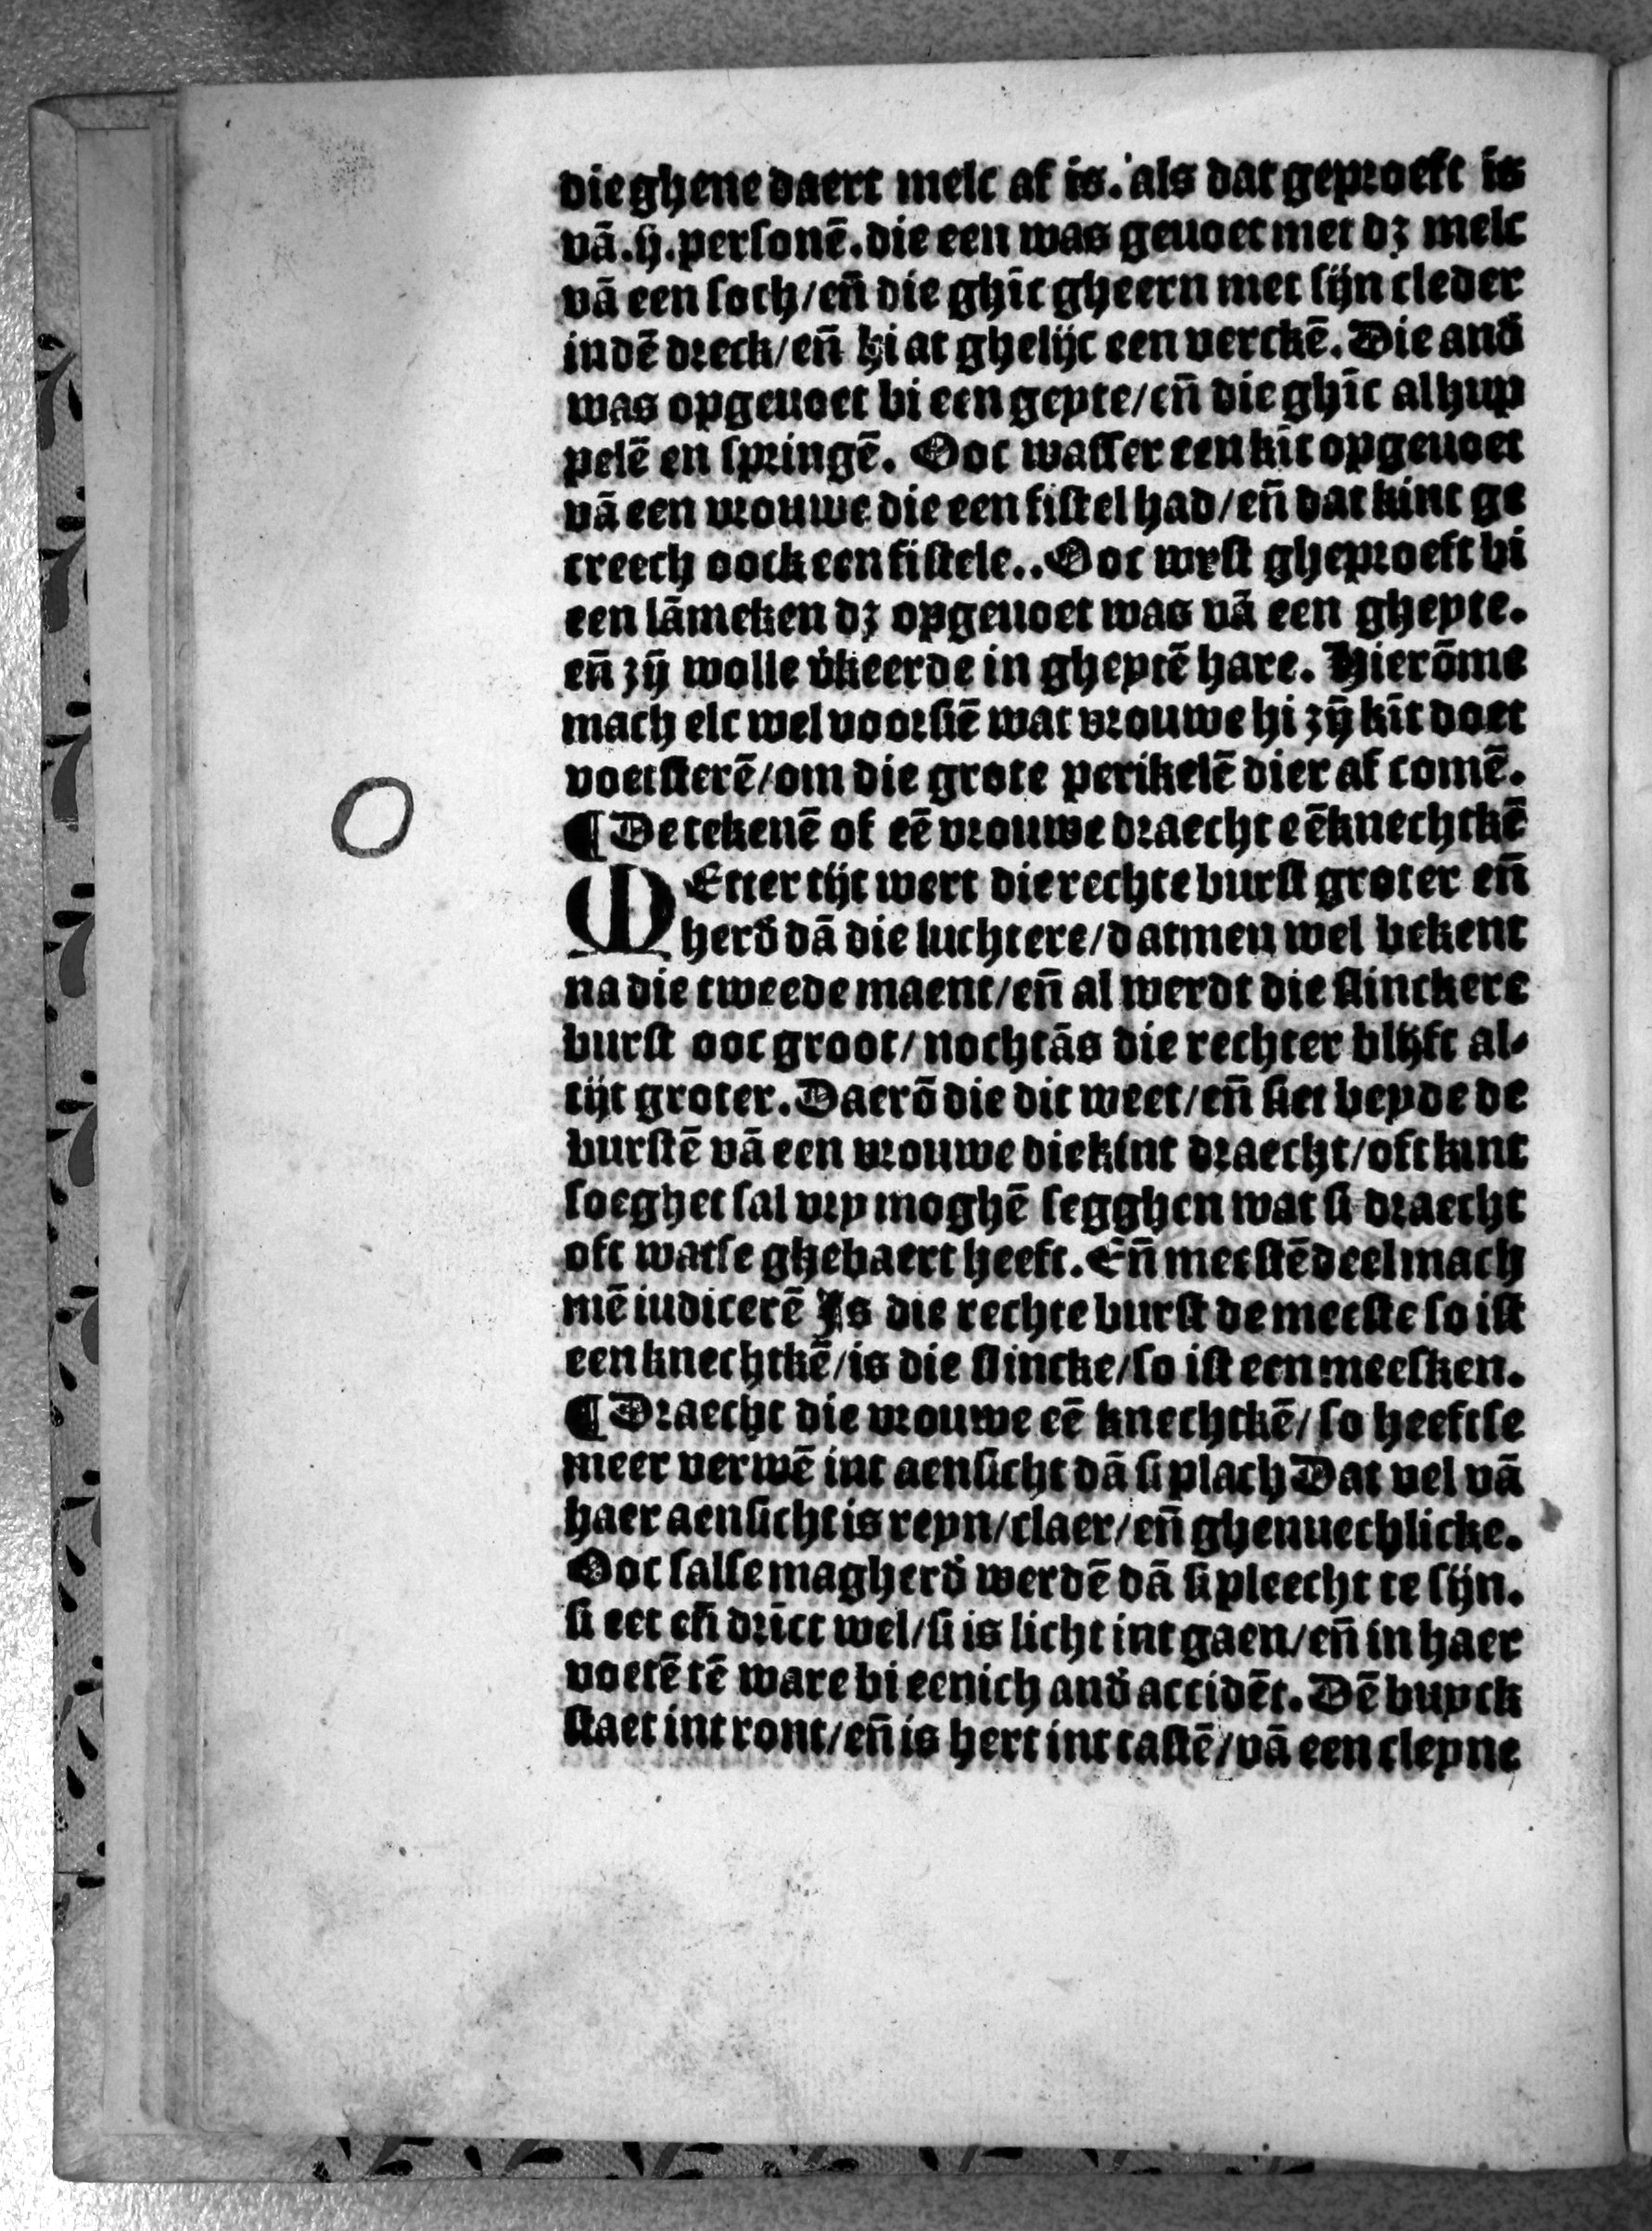 die ghene daert melc af is. als dat geproeft is
vā.ij.personē.die een was geuoet met dʒ melc
vā een soch/eñ die ghīc gheern met sijn cleder
indē dreck/eñ hi at ghelijc een verckē. Die and̄
was opgeuoet bi een geyte/eñ die ghīc al hup
pelē en springē. Ooc wasser een kīt opgeuoet
vā een vrouwe die een fistel had/eñ dat kint ge
creech oock een fistele.. Ooc wrst gheproeft bi
een lāmeken dʒ opgeuoet was vā een gheyte.
eñ zȳ wolle v̄keerde in gheytē hare. Hierōme
mach elc wel voorsiē wat vrouwe hi zȳ kīt doet
voetsterē/om die grote perikelē dier af comē.
¶ De tekenē of eē vrouwe draecht eē knechtkē
MEtter tijt wert die rechte burst groter eñ
herd̄ dā die luchtere/datmen wel bekent
na die tweede maent/eñ al werdt die slinckere
burst ooc groot/nochtās die rechter blijft al-
tijt groter. Daerō die dit weet/eñ siet beyde de
burstē vā een vrouwe die kint draecht/oft kint
soeghet sal vry moghē segghen wat si draecht
oft watse ghebaert heeft. Eñ meestēdeel mach
mē iudicerē Is die rechte burst de meeste so ist
een knechtkē/is die slincke/so ist een meesken.
¶ Draecht die vrouwe eē knechtkē/so heeftse
meer verwē int aensicht dā si plach Dat vel vā
haer aensicht is reyn/claer/eñ ghenuechlicke.
Ooc salse magherd̄ werdē dā si pleecht te sijn.
si eet eñ drīct wel/si is licht int gaen/eñ in haer
voetē tē ware bi eenich and̄ accidēt. Dē buyck
staet int ront/eñ is hert int tastē/vā een cleyne